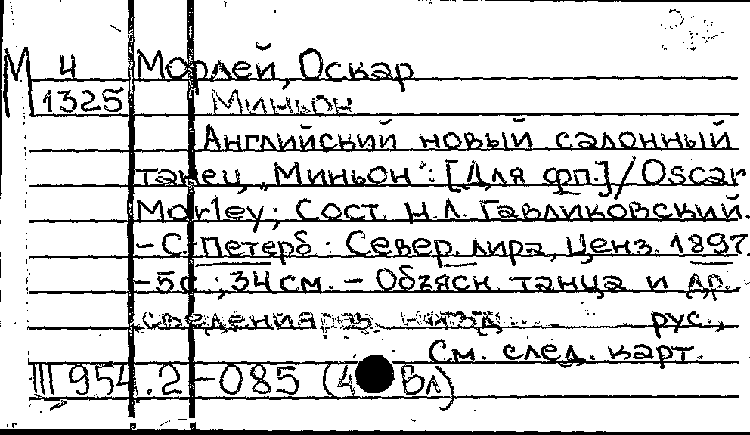 М 4 Морлей, Оскар
1325 Миньон
Английский новый салонный
танец „Миньон“: [Для фп.]/Oscar
Morley; Сост. Н.Л. Гавликовский.
– С-Петерб: Север. лира, ценз. 1897
– 5с.; 34 см. – Объясн. танца и др.
сведения рус.,
См. след. карт.
Ш 954.2-085 (4 Вл)